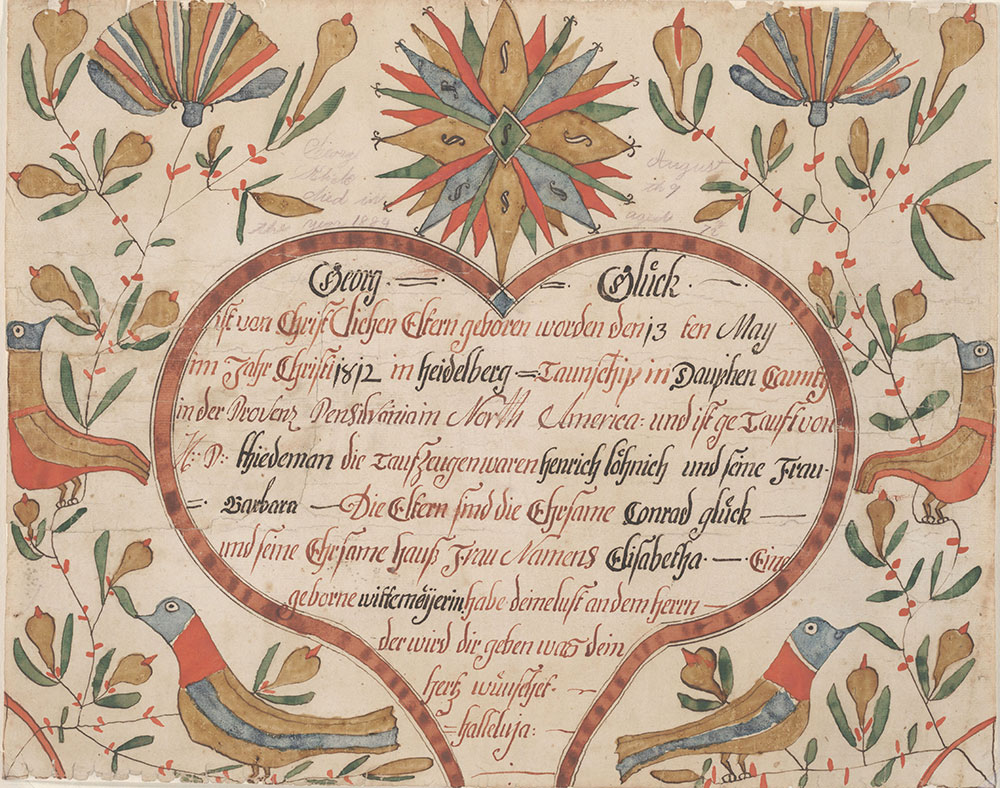 Georg Glück
ist von Christlichen Eltern geboren worden den 13 ten May
im Jahr Christi 1812 in heidelberg Taunschip in Dauphen Caunty
in der Provenz Pensilvania in North America: und ist ge Tauft von
H: D: thiedeman die Taufzeugen waren henrich löhnich und seine Frau
Barbara Die Eltern sind die Ehrsame Conrad glück
und seine Ehrsame hauß Frau Namens Elisabetha Eine
geborne wittemöÿerin habe deine lust an dem herrn
der wird dir geben was dein
hertz wünschet
halleluja:
Georg
died in
the year 1884
August
th 9
aged